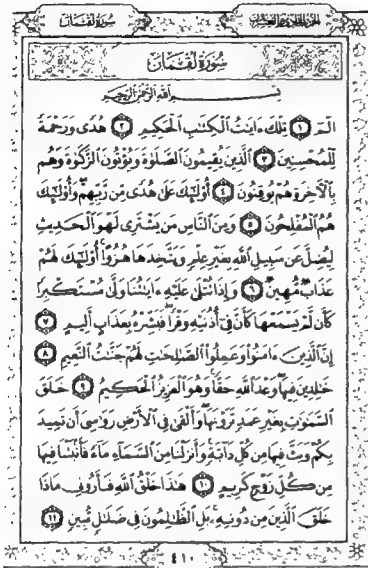 الجزء الحادي والعشرون سورة لقمان
سُورَةُ لُقْمَانَ
بِسْمِ اللَّهِ الرَّحْمَٰنِ الرَّحِيمِ
الٓمٓ ١ تِلْكَ ءَايَٰتُ الْكِتَٰبِ الْحَكِيمِ ٢ هُدًى وَرَحْمَةً
لِّلْمُحْسِنِينَ ٣ الَّذِينَ يُقِيمُونَ الصَّلَوٰةَ وَيُؤْتُونَ الزَّكَوٰةَ وَهُم
بِالْأَخِرَةِ هُمْ يُوقِنُونَ ٤ أُوْلَٰٓئِكَ عَلَىٰ هُدًى مِّن رَّبِّهِمْ وَأُوْلَٰٓئِكَ
هُمُ الْمُفْلِحُونَ ٥ وَمِنَ النَّاسِ مَن يَشْتَرِى لَهْوَ الْحَدِيثِ
لِيُضِلَّ عَن سَبِيلِ اللَّهِ بِغَيْرِ عِلْمٍ وَيَتَّخِذَهَا هُزُوًا أُوْلَٰٓئِكَ لَهُمْ
عَذَابٌ مُّهِينٌ ٦ وَإِذَا تُتْلَىٰ عَلَيْهِ ءَايَٰتُنَا وَلَّىٰ مُسْتَكْبِرًا
كَأَن لَّمْ يَسْمَعْهَا كَأَنَّ فِىٓ أُذُنَيْهِ وَقْرًا فَبَشِّرْهُ بِعَذَابٍ أَلِيمٍ ٧
إِنَّ الَّذِينَ ءَامَنُوا وَعَمِلُوا الصَّٰلِحَٰتِ لَهُمْ جَنَّٰتُ النَّعِيمِ ٨
خَٰلِدِينَ فِيهَا وَعْدَ اللَّهِ حَقًّا وَهُوَ الْعَزِيزُ الْحَكِيمُ ٩ خَلَقَ
السَّمَٰوَٰتِ بِغَيْرِ عَمَدٍ تَرَوْنَهَا وَأَلْقَىٰ فِى الْأَرْضِ رَوَٰسِىَ أَن تَمِيدَ
بِكُمْ وَبَثَّ فِيهَا مِن كُلِّ دَآبَّةٍ وَأَنزَلْنَا مِنَ السَّمَآءِ مَآءً فَأَنۢبَتْنَا فِيهَا
مِن كُلِّ زَوْجٍ كَرِيمٍ ١٠ هَٰذَا خَلْقُ اللَّهِ فَأَرُونِى مَاذَا
خَلَقَ الَّذِينَ مِن دُونِهِ بَلِ الظَّٰلِمُونَ فِى ضَلَٰلٍ مُّبِينٍ ١١
٤١٠